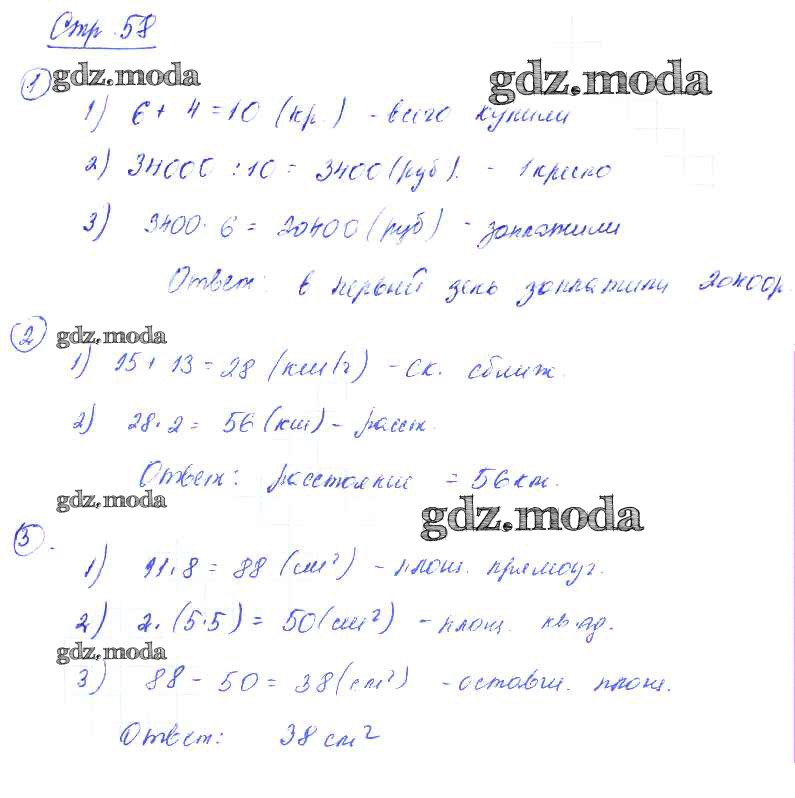 Стр. 58
1 gdz.moda gdz.moda
1) 6 + 4 = 10 (кр.) - всего купили
2) 34000 : 10 = 3400 (руб). - 1 кресло
3) 3400 · 6 = 20400 (руб) - заплатили
Ответ: в первый день заплатили 20400р.
2 gdz.moda
1) 15 + 13 = 28 (км/ч) - ск. сближ.
2) 28 · 2 = 56 (км) - расст.
Ответ: расстояние = 56 км.
gdz.moda gdz.moda
3.
1) 11 · 8 = 88 (см²) - площ. прямоуг.
2) 2 · (5 · 5) = 50 (см²) - площ. кв-ад.
gdz.moda
3) 88 - 50 = 38 (см²) - оставш. площ.
Ответ: 38 см²